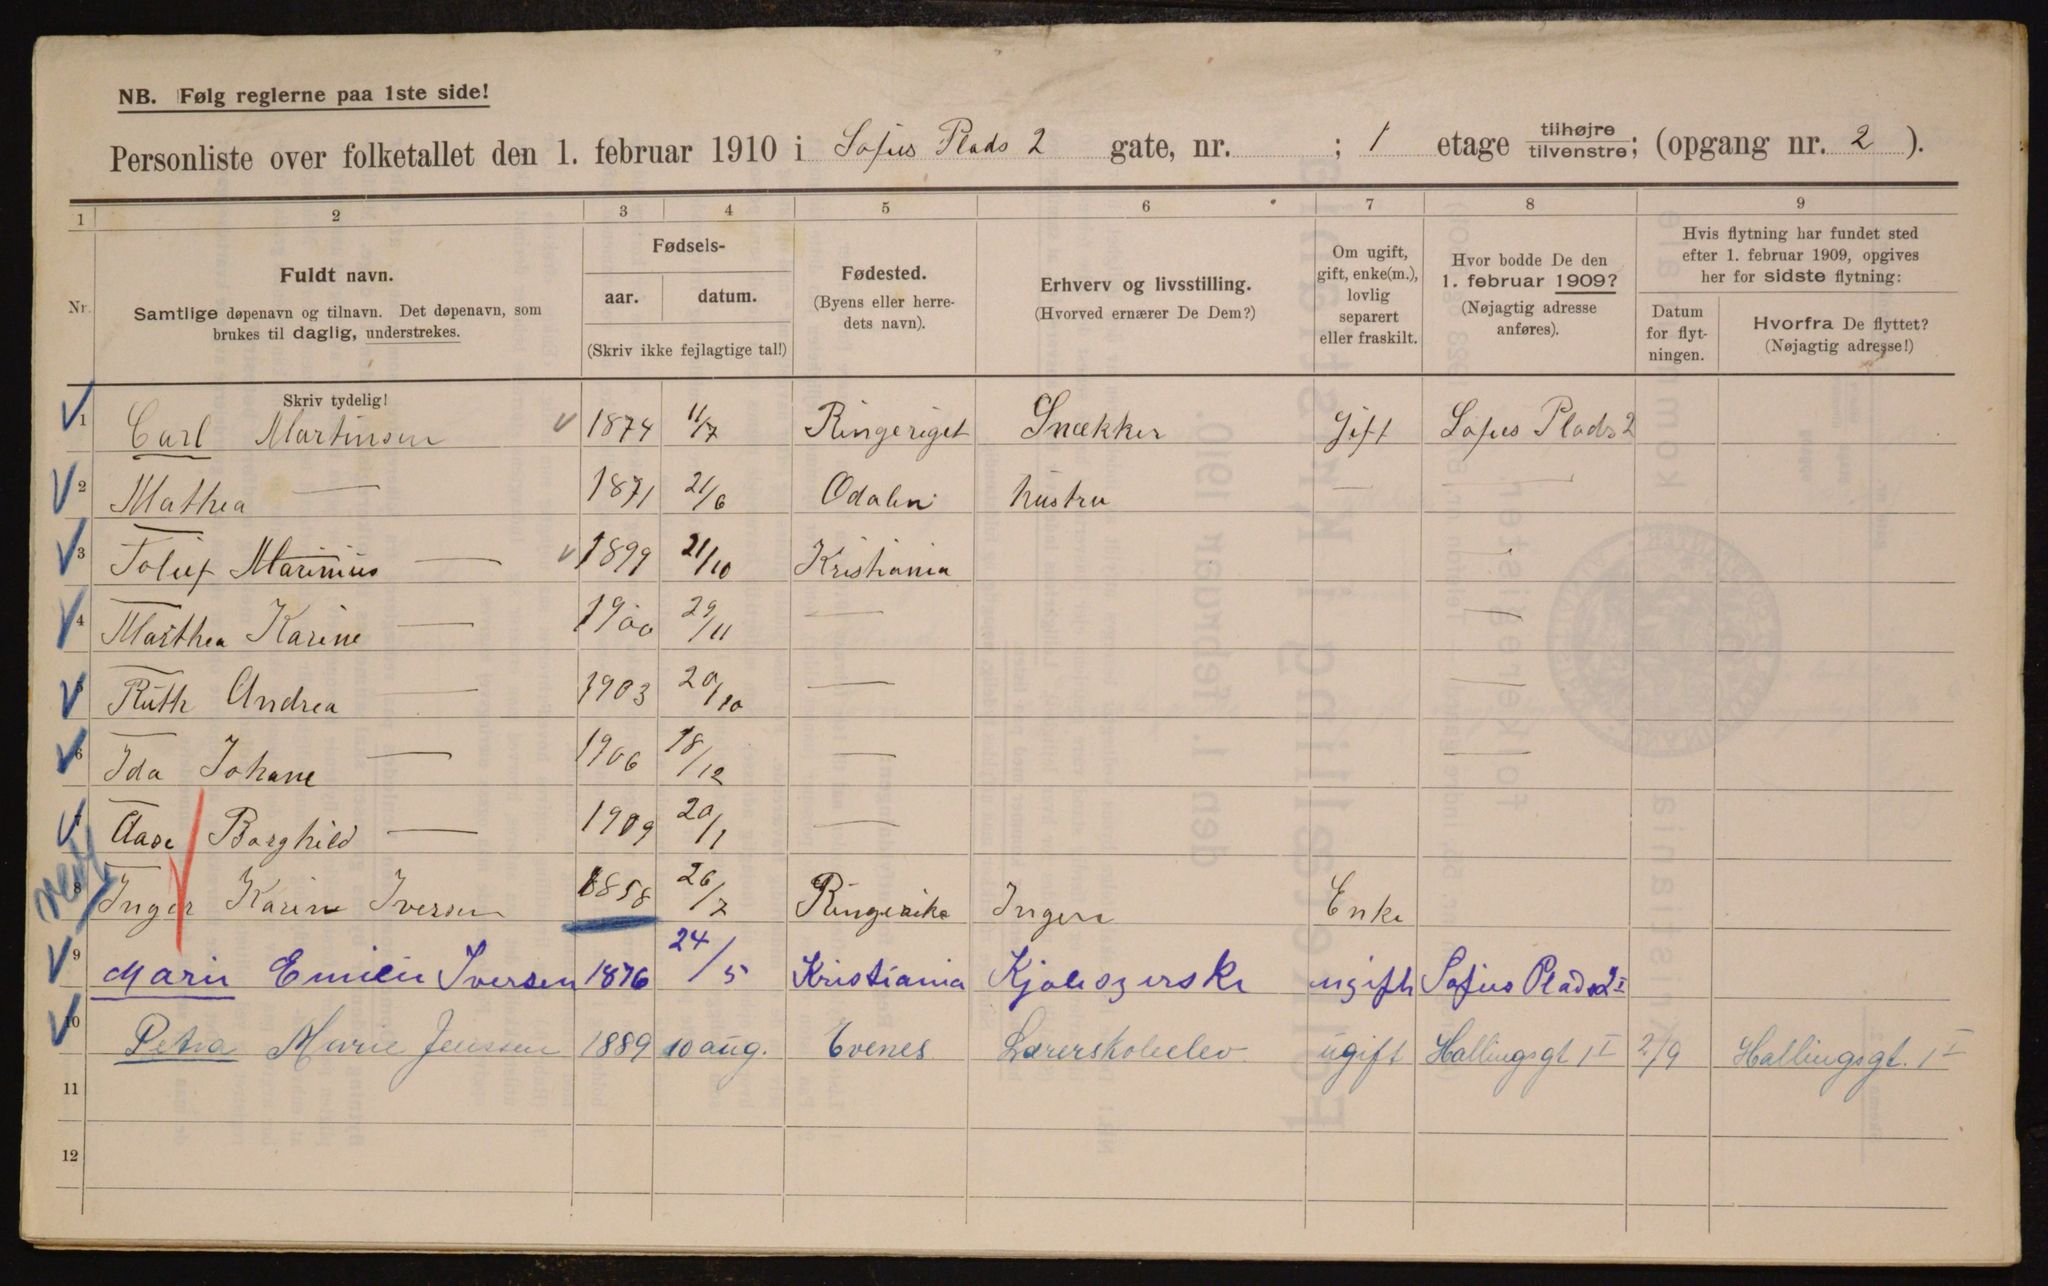 NB. Følg reglerne paa 1ste side!
Personliste over folketallet den 1. februar 1910 i Sofies Plads 2 gate, nr. ; 1 etage tilhøjre tilvenstre; (opgang nr. 2 ).
1 2 3 4 5 6 7 8 9
Nr.
Fuldt navn.
Samtlige døpenavn og tilnavn. Det døpenavn, som
brukes til daglig, understrekes.
Skriv tydelig!
Fødsels-
aar. datum.
(Skriv ikke fejlagtige tal!)
Fødested.
(Byens eller herre-
dets navn).
Erhverv og livsstilling.
(Hvorved ernærer De Dem?)
Om ugift,
gift, enke(m.),
lovlig
separert
eller fraskilt.
Hvor bodde De den
1. februar 1909?
(Nøjagtig adresse
anføres).
Hvis flytning har fundet sted
efter 1. februar 1909, opgives
her for sidste flytning:
Datum
for flyt-
ningen.
Hvorfra De flyttet?
(Nøjagtig adresse!)
1 Carl Martinsen 1874 11/7 Ringeriget Snekker Gift Sofies Plads 2
2 Mathea — 1871 21/6 Odalen hustru — —
3 Marinius — 1899 21/10 Kristiania —
4 Marthea Karine — 1900 29/11 — —
5 Ruth Andrea — 1903 20/10 — —
6 Ida Johane — 1906 18/12 — —
7 Aase Borghild — 1909 20/1 —
8 Inger Karine Iversen 1858 26/7 Ringerike Ingen Enke
9 Marie Emilie Iversen 1876 24/5 Kristiania Kjolesyerske ugift Sofies Plads 2 I
10 Petra Marie Jenssen 1889 10 aug. Evenes Lærerskoleelev ugift Hallingsgt 1 I 2/9 Hallingsgt. 1 I
11
12